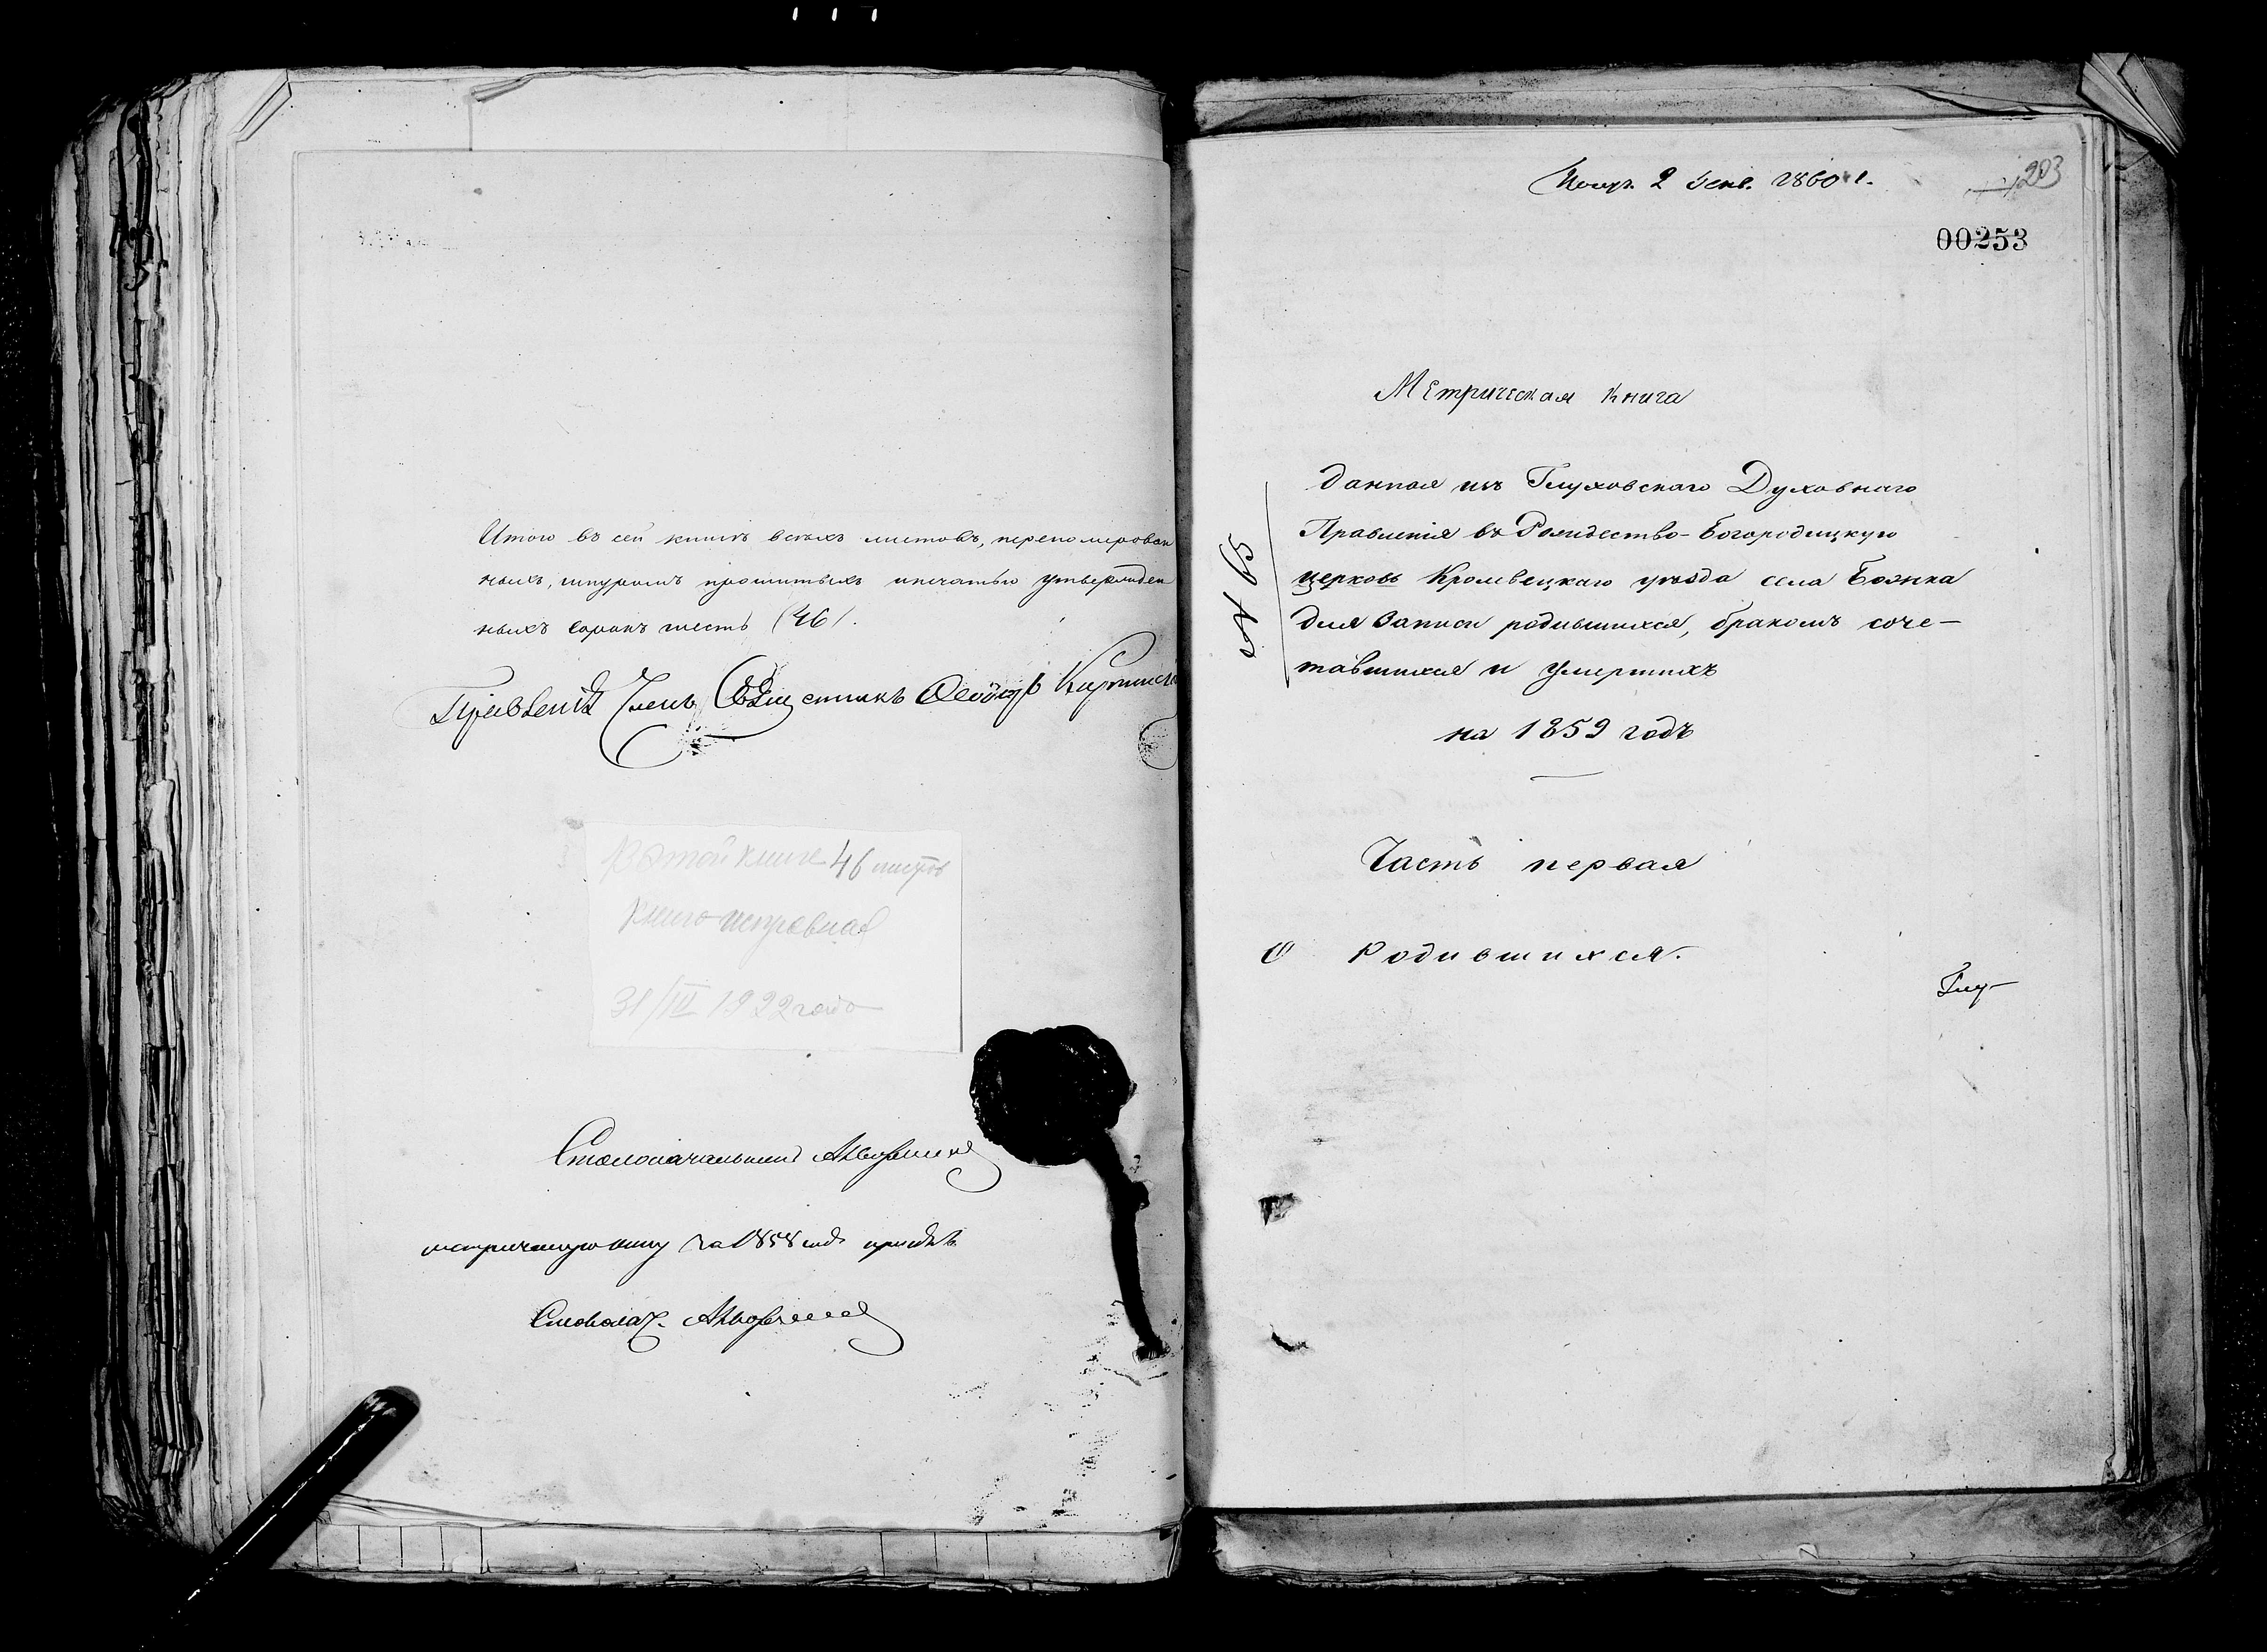 Итого въ сей книгѣ всѣхъ листовъ, перенумерован
ныхъ, шнуромъ прошитыхъ и печатью утвержден
ныхъ сорокъ шесть (46).
Членъ Священникъ Ѳеодоръ
В этой книге 46 листов
книга исправная
31/III 1922 года
Столоначальникъ
метрическую книгу за 1858 годъ
Столонач.
2 Генв. 1860 г.
203
00253
Метрическая Книга
данная изъ Глуховскаго Духовнаго
Правленія въ Рождество-Богородицкую
церковь Кролевецкаго уѣзда села Божка
для записи родившихся, бракомъ соче-
тавшихся и умершихъ
на 1859 годъ
Часть первая
О Родившихся.
Глу-